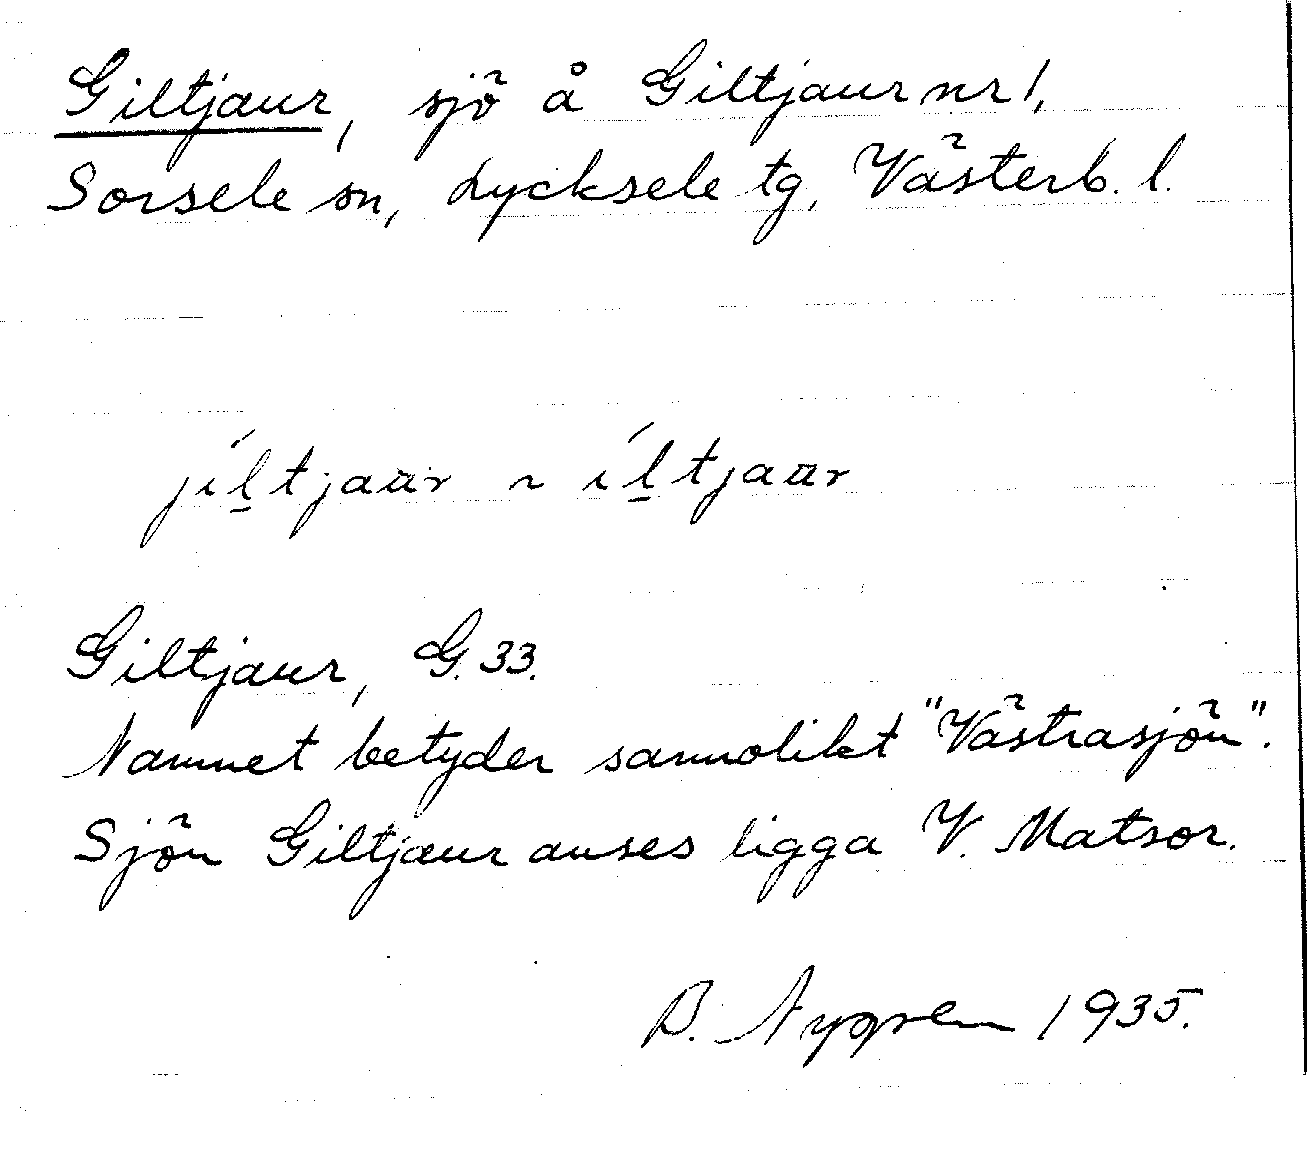 Giltjaur, sjö å Giltjaur nr 1,
Sorsele sn, Lycksele tg, Västerb. l.
jíl̠tjaür ~ íl̠tjaür
Giltjaur, G. 33.
Namnet betyder sannolikt "Västrasjön".
Sjön Giltjaur anses ligga V. Matsor.
B. Nygren 1935.